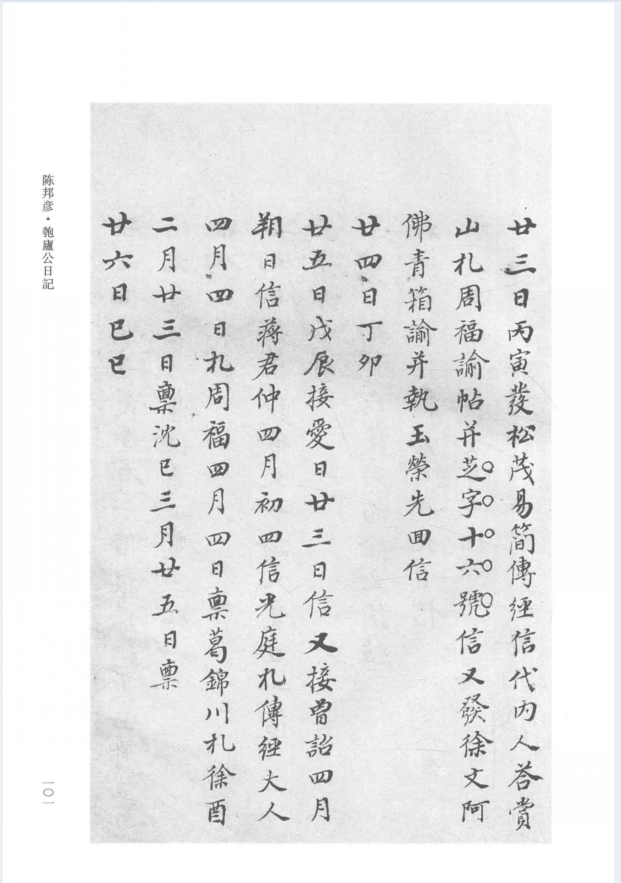 廿三日丙寅發松茂易簡傳經信代内人荅賞
山札周福諭帖并芝字十六號信又發徐文阿
佛青箱諭并執玉榮先回信
廿四日丁卯
廿五日戊辰接愛日廿三日信又接曾詒四月
朔日信蔣君仲四月初四信光庭札傳經大人
四月四日札周福四月四日禀葛錦川札徐酉
二月廿三日禀沈巳三月廿五日禀
廿六日己巳
陈邦彦·匏廬公日記
一〇一